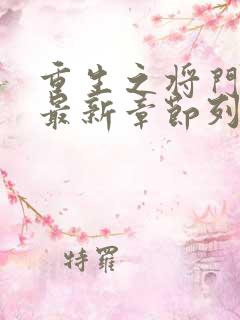 重生之将门
最新章節列
特羅